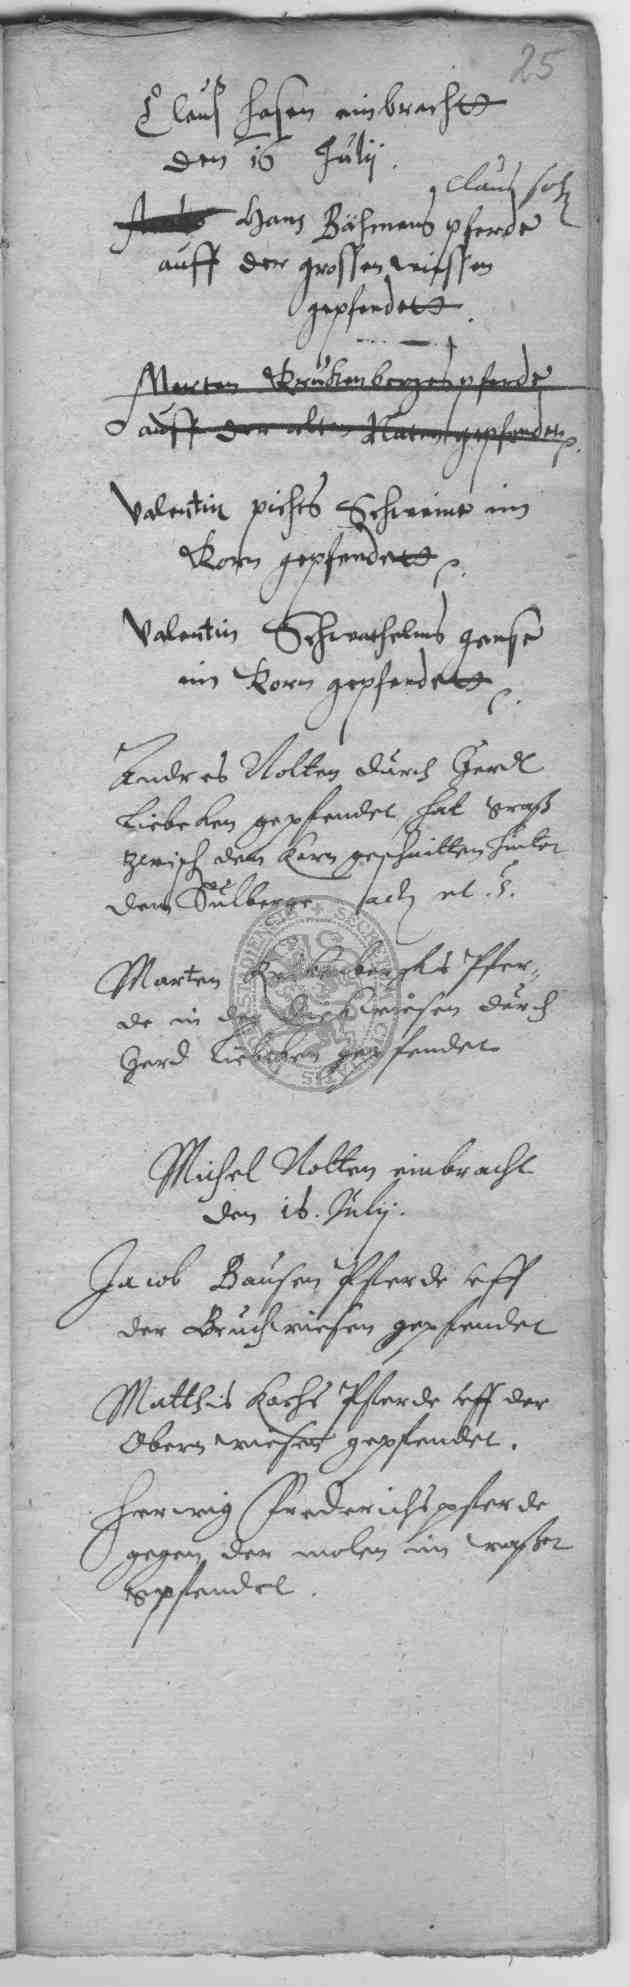 25
Claus hasen einbrachtt
den 16 Julij.
Claus
Hans Bähmens pferde
auff der grossen wiessen
gepfendett.
Marten Krukenberges pferde
auff der alten gepfendett.
Valentin pichts Schweine im
Korn gepfendett.
Valentin Schwathelms gense
im Korn gepfendett.
Andres Nolten durch Gerdt
Liebeken gepfendet hat graß
zwisch dem Korn geschnitten hinter
dem Sülberge
Marten Krukenbergks Pfer-
de in der wiesen durch
Gerd Liebeken gepfendet
Michel Nolten einbracht
den 16. Julij.
Jacob Bausen Pferde uff
der Bruchwiesen gepfendet
Matthis Kochs Pferde uff der
Obern wiesen gepfendet.
Herwig Frederichs pferde
gegen der molen im
gpfendet.